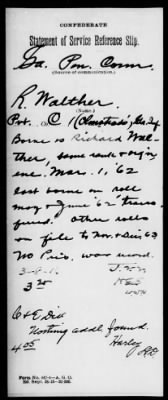 CONFEDERATE
Statement of Service Reference Slip.
Ga. Pen. Comr.
(Source of communication.)
R. Walther.
(Name.)
Pvt. C 1 (Olmstead's) Ga. Inf.
Borne as Richard Wal-
ther, same rank &
enl. Mar. 1, '62
last borne on roll
May & June '62 trans-
ferred. Other rolls
on file to Nov. & Dec. 63
No Pris. war record.
C & E. Div
Nothing addl. found.
4 05 Harley
Form No.